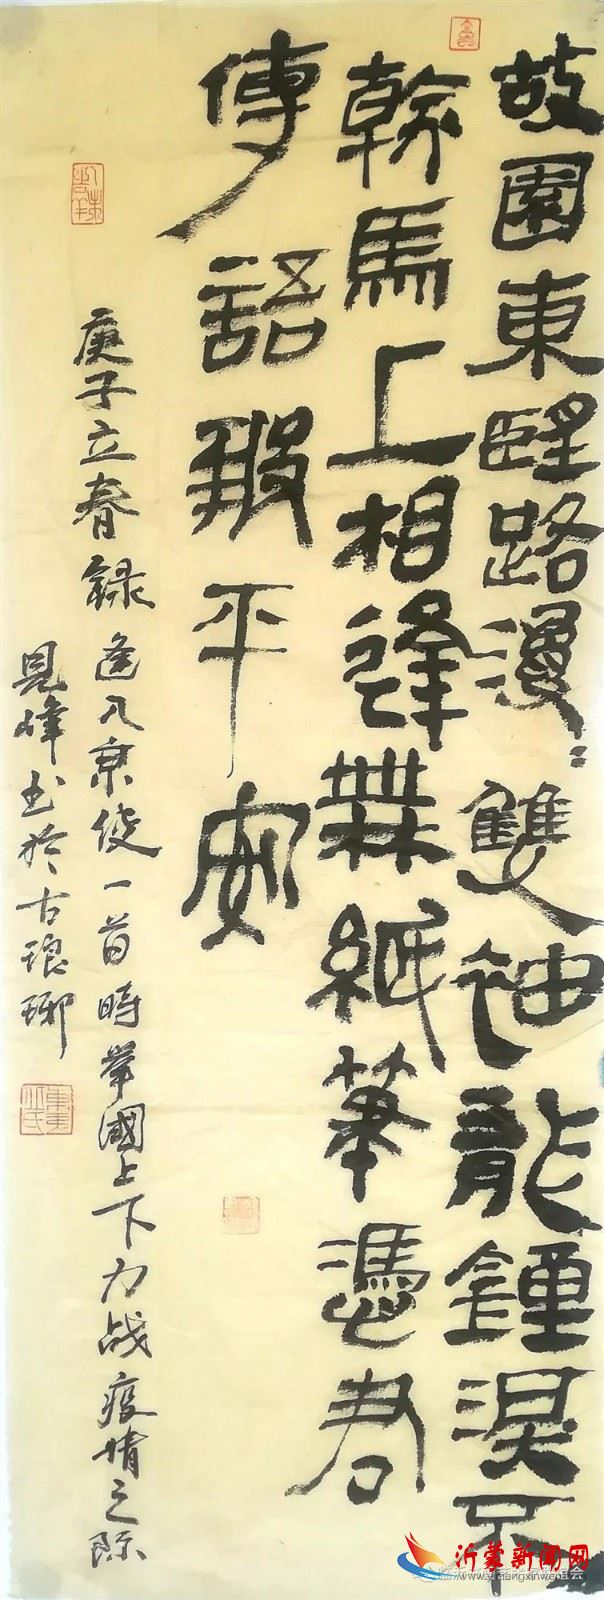 故園東望路漫漫雙袖龍鍾淚不
乾馬上相逢無紙筆憑君
傳語報平安
庚子立春錄逢入京使一首時舉國上下力战疫情之际
見峰书於古琅琊
沂蒙新闻网
www.yimengxinwen.com